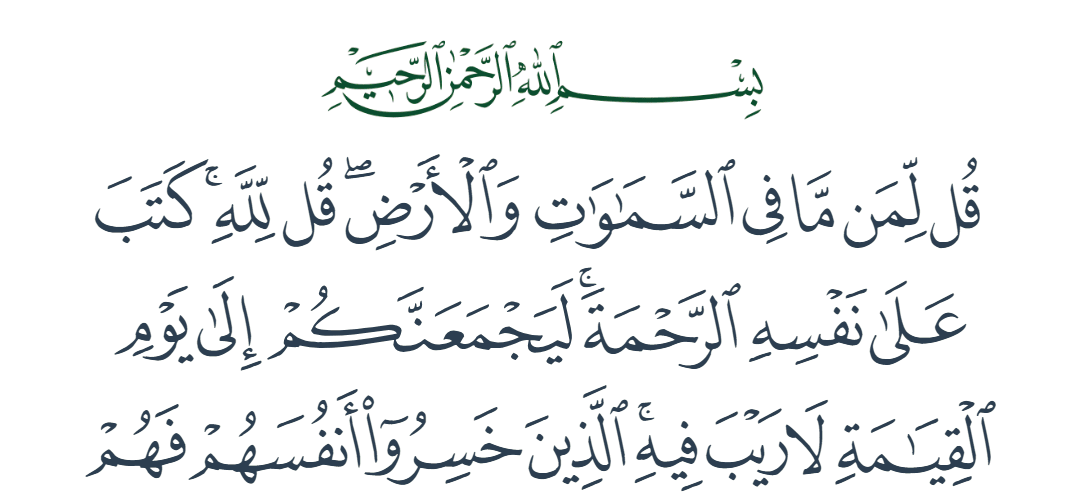 بِسْمِ ٱللَّهِ ٱلرَّحْمَٰنِ ٱلرَّحِيمِ
قُل لِّمَن مَّا فِى ٱلسَّمَٰوَٰتِ وَٱلْأَرْضِ ۖ قُل لِّلَّهِ ۚ كَتَبَ
عَلَىٰ نَفْسِهِ ٱلرَّحْمَةَ ۚ لَيَجْمَعَنَّكُمْ إِلَىٰ يَوْمِ
ٱلْقِيَٰمَةِ لَا رَيْبَ فِيهِ ۚ ٱلَّذِينَ خَسِرُوٓا۟ أَنفُسَهُمْ فَهُمْ